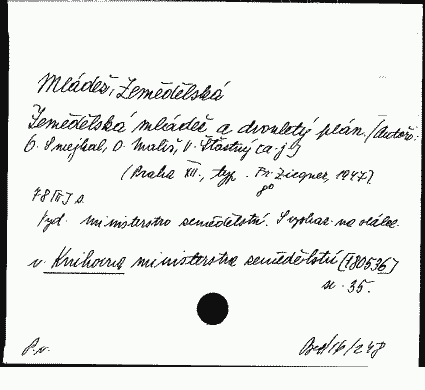 Mládež, Zemědělská
Zemědělská mládež a dvouletý plán. /Autoři:
O. Smejkal, O. Mališ, V. Šťastný [a.j.]
(Praha XII., typ. Fr. Ziegner, 1947).
78 [II] s.
Vyd. ministerstvo zemědělství. S vyobr. na obálce.
v. Knihovna ministerstva zemědělství [180536]
sv. 35.
/16/248